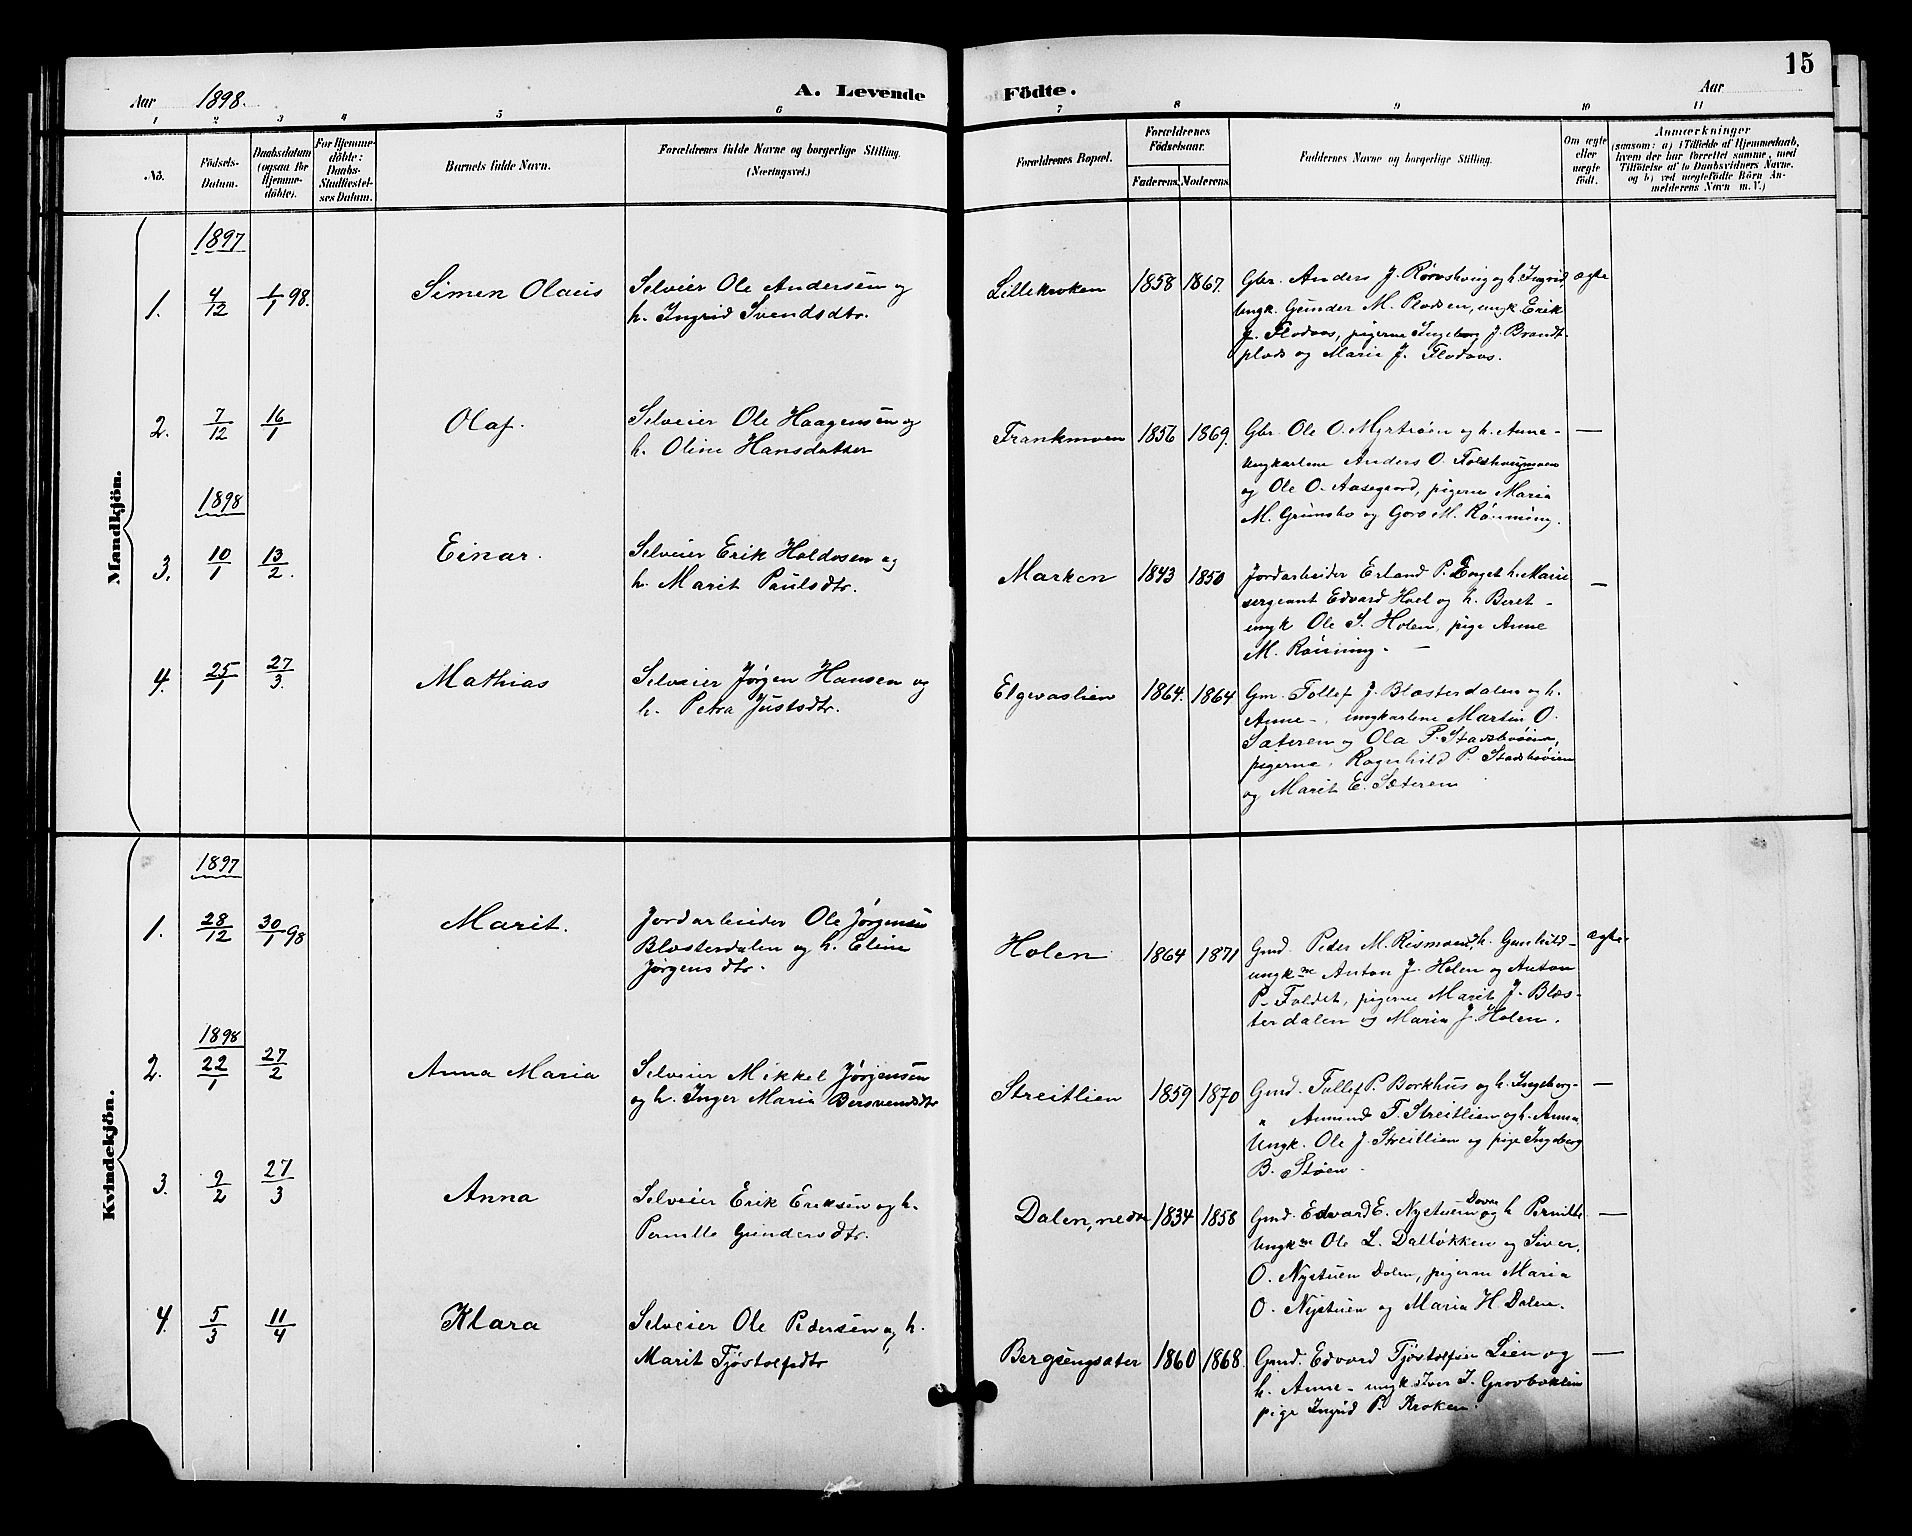 15
Aar 1898.
A. Levende
Födte.
Aar
1 2 3 4 5 6 7 8 9 10 11
No.
Födsels-Datum.
Daabsdatum (ogsaa for Hjemme-döbte).
For Hjemme-döbte: Daabs-Stadfæstel-ses Datum.
Barnets fulde Navn.
Forældrenes fulde Navne og borgerlige Stilling.
(Næringsvei.)
Forældrenes Bopæl.
Forældrenes Födselsaar.
Faderens. Moderens.
Faddernes Navne og borgerlige Stilling.
Om ægte eller uægte födt.
Anmærkninger
(saasom: a) i Tilfælde af Hjemmedaab,
hvem der har forrettet samme, med
Tilföielse af to Daabsvidners Navne.
og b) ved uægtefödte Börn An-
melderens Navn m. V.)
Mandkjön.
1897
1. 4/12 1/1 98. Simen Olaus
Selveier Ole Andersen og
h. Ingrid Svendsdtr.
Lillekroken 1858 1867.
Gbr. Anders J. Rørosvig og h. Ingrid
Ungk. Gunder M. Plodsen, ungk Erik
J. Flodaas, pigerne Ingeborg J. Brandt-
plads og Marie J. Flodaas.
ægte
2. 7/12 16/1 Olaf.
Selveier Ole Haagensen og
h. Oline Hansdatter
Frankmoen 1856 1869.
Gbr. Ole O. Myrtrøen og h. Anne-
Ungkarlene Anders O. Foldhaugmoen
og Ole O. Aasegaard, pigerne Maria
M. Grimsbo og Goro M. Rønning.
—
1898
3. 10/1 13/2. Einar.
Selveier Erik Haldosen og
h. Marit Paulsdtr.
Marken 1843 1850
Jordarbeider Erland P. Enget h. Marie
sergeant Edvard Hoel og h. Beret-
ungk Ole S. Holen, pige Anne
M. Rønning-
—
4. 25/1 27/3. Mathias
Selveier Jørgen Hansen og
h. Petra Justsdtr.
Elgevaslien 1864. 1864
Gm. Tollef J. Blæsterdalen og h.
Anne-, ungkarlene Martin O.
Sæteren og Ola P. Stadsbøien,
pigerne, Ragnhild P. Stadsbøien
og Marit E. Sæteren
Kvindekjön.
1897
1. 28/12 30/1 98 Marit.
Jordarbeider Ole Jørgensen
Blæsterdalen og h. Eline
Jørgensdtr.
Holen 1864 1871
Gmd. Peder M. Rismoen, h. Gunhild-
ungkne Anton J. Holen og Anton
P. Foldet, pigerne Marit J. Blæs-
terdalen og Maria J. Holen.
ægte
1898
2. 22/1 27/2 Anna Maria
Selveier Mikkel Jørgensen
og h. Inger Maria Bersvendsdtr
Streitlien 1859 1870
Gmd. Tollef P. Borkhus og h. Ingeborg-
" Amund T. Streitlien og h. Anna
Ungk. Ole J. Streitlien og pige Ingeborg
B. Støen.
—
3. 9/2 27/3 Anna
Selveier Erik Eriksen og h.
Pernille Gundersdtr.
Dalen, nedre 1834 1858
Gmd. Edvard E. Nystuen Dovre og h Pernille
Ungkne Ole L. Dalløkken og Siver
O. Nystuen Dalen, pigerne Maria
O. Nystuen og Maria H. Dalen.
—
4. 5/3 11/4 Klara
Selveier Ole Pedersen og h.
Marit Tjøstolfsdtr
Bergsengsæter 1860 1868.
Gmd. Edvard Tjøstolfsen Lien og
h. Anne- ungk Iver I. Grovbæklien
pige Ingrid P. Kroken.
—